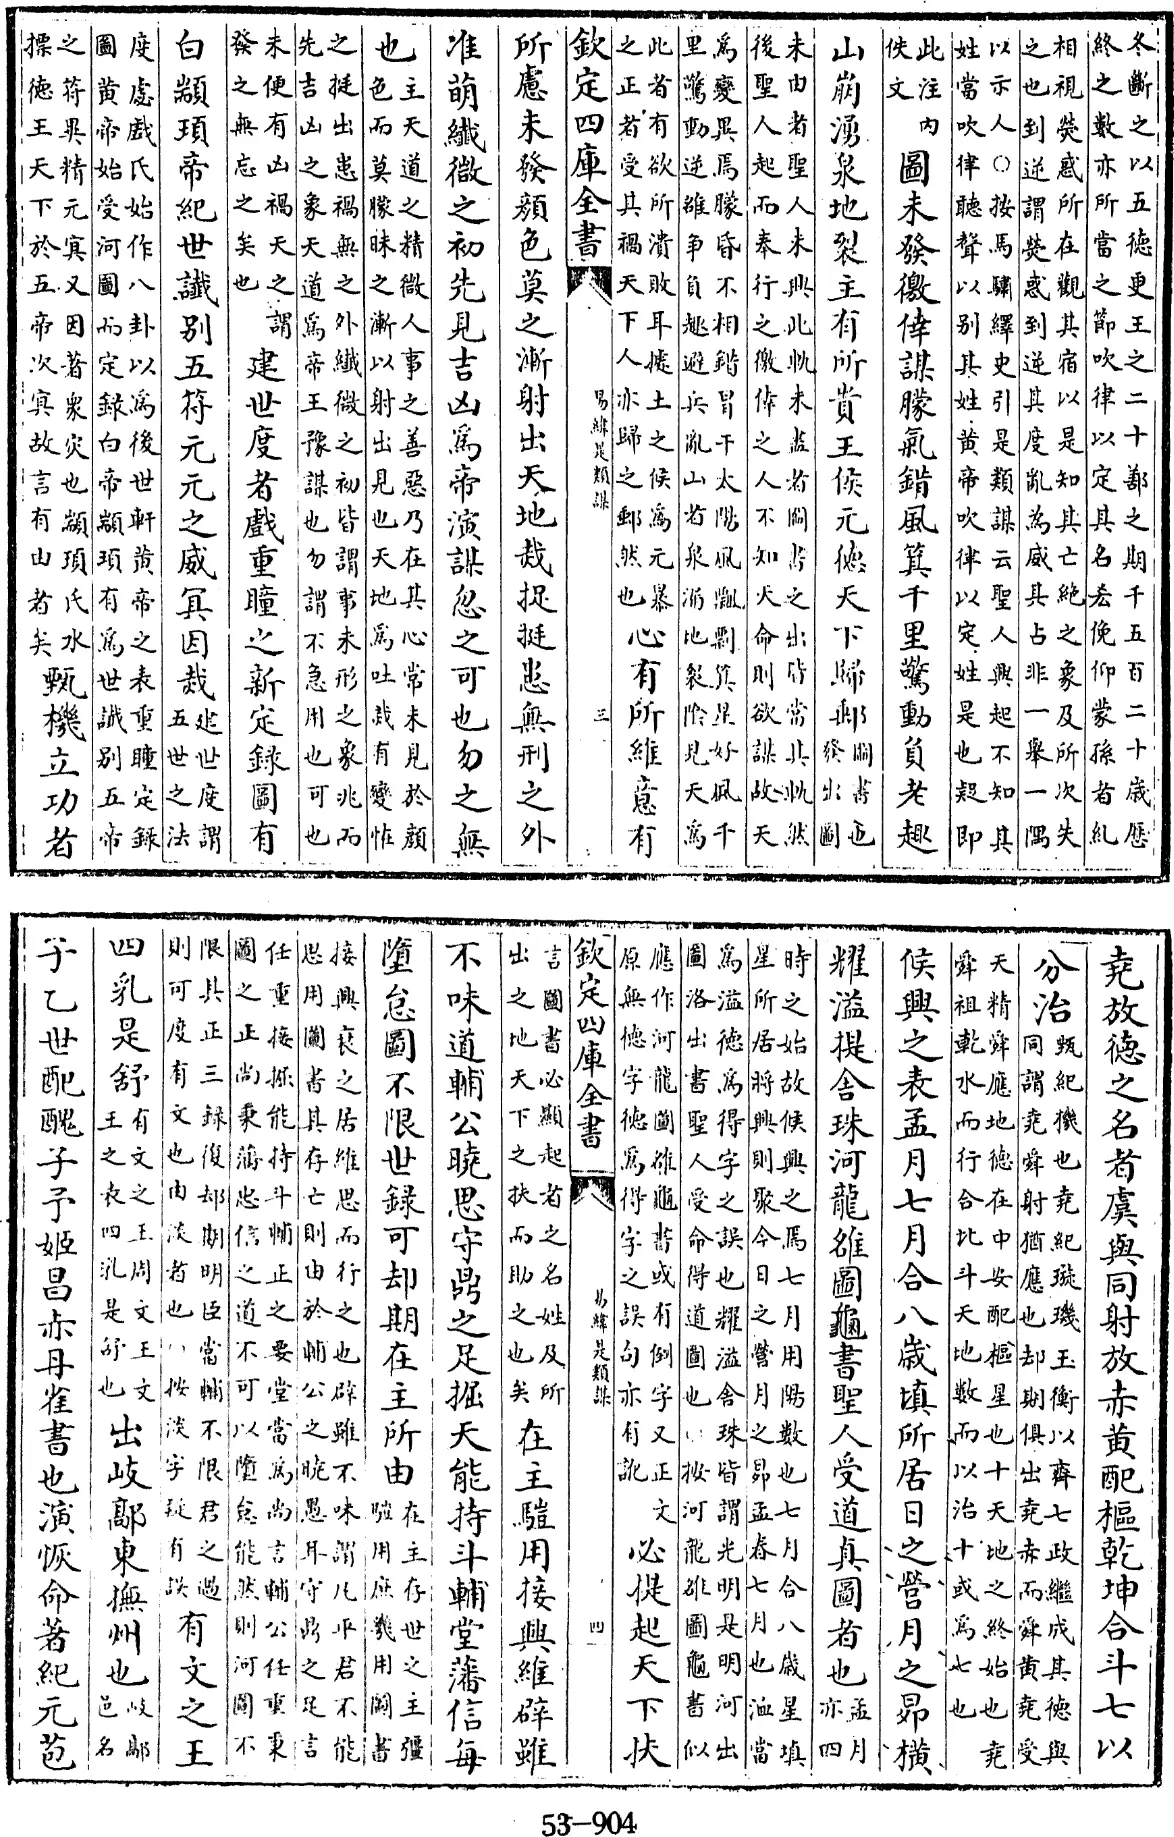 冬斷之以五德更王之二十鄒之期千五百二十歳歴
終之數亦所當之節吹律以定其名宏俛仰蒙孫者糺
相視熒惑所在觀其宿以是知其亡絶之象及所次失
之也到逆謂熒惑到逆其度亂為威其占非一舉一隅
以示人○按馬驌繹史引是類謀云聖人興起不知其
姓當吹律聽聲以别其姓黄帝吹律以定姓是也疑即
此注内
佚文
圖未發徼倖謀朦氣錯風箕千里驚動負老趣
山崩湧泉地裂主有所貴王侯元德天下歸郵
圖書已
發出圖
未由者聖人未興此軌未盡者圖書之出皆當其軌然
後聖人起而奉行之徼倖之人不知天命則欲謀故天
為變異焉朦昏不相錯冒干太陽風飄剽箕星好風千
里驚動逆雖争負趣避兵亂山者泉溺地裂陰見天為
此者有欲所潰敗耳捿土之候為元暴
之正者受其禍天下人亦歸之郵然也
心有所維意有
欽定四庫全書
易緯是類謀
三
所慮未發顔色莫之漸射出天地哉捉挺患無刑之外
准萌纎微之初先見吉凶為帝演謀忽之可也勿之無
也
主天道之精微人事之善惡乃在其心常未見於顔
色而莫朦昧之漸以射出見也天地為吐哉有變恠
之挺出患禍無之外纎微之初皆謂事未形之象兆而
先吉凶之象天道為帝王豫謀也勿謂不急用也可也
未便有凶禍天之謂
發之無忘之矣也
建世度者戲重瞳之新定錄圖有
白顓頊帝紀世讖别五符元元之威冥因哉
建世度謂
五世之法
度虙戲氏始作八卦以為後世軒黄帝之表重瞳定録
圖黄帝始受河圖而定録白帝顓頊有為世讖别五帝
之符異精元冥又因著衆灾也顓頊氏水
摽德王天下於五帝次冥故言有山者矣
甄機立功者
堯放德之名者虞與同射放赤黄配樞乾坤合斗七以
分治
甄紀機也堯紀璇璣玉衡以齊七政繼成其德與
同謂堯舜射猶應也却期俱出堯赤而舜黄堯受
天精舜應地德在中安配樞星也十天地之終始也堯
舜祖乾水而行合比斗天地數而以治十或為七也
候興之表孟月七月合八歳填所居日之營月之昴横
耀溢提舍珠河龍雒圖龜書聖人受道真圖者也
孟月
亦四
時之始故候興之焉七月用陽數也七月合八歳星填
星所居將興則聚今日之營月之昴孟春七月也洫當
為溢德為得字之誤也耀溢舍珠皆謂光明是明河出
圖洛出書聖人受命得道圖也○按河龍雒圖龜書似
應作河龍圖雒龜書或有倒字又正文
原無德字德為得字之誤句亦有訛
必提起天下扶
欽定四庫全書
易緯是類謀
四
言圖書必顯起者之名姓及所
出之地天下之扶而助之也矣
在主驩用接興維辟雖
不味道輔公曉思守鼎之足掘天能持斗輔堂藩信每
墮怠圖不限世録可却期在主所由
在主存世之主彊
驩用庶幾用圖書
接興衰之居維思而行之也辟雖不味謂凡平君不能
思用圖書其存亡則由於輔公之曉愚耳守鼎之足言
任重接掘能持斗輔正之要堂當為尚言輔公任重東
圖之正尚秉藩忠信之道不可以墮怠能然則河圖不
限其正三録復却期明臣當輔不限君之過
則可度有文也由淡者也○按淡字疑有誤
有文之王
四乳是舒
有文之王周文王文
王之表四乳是舒也
出岐鄗東撫州也
岐鄗
邑名
子乙世配醜子予姬昌赤丹雀書也演恢命著紀元苞
53-904